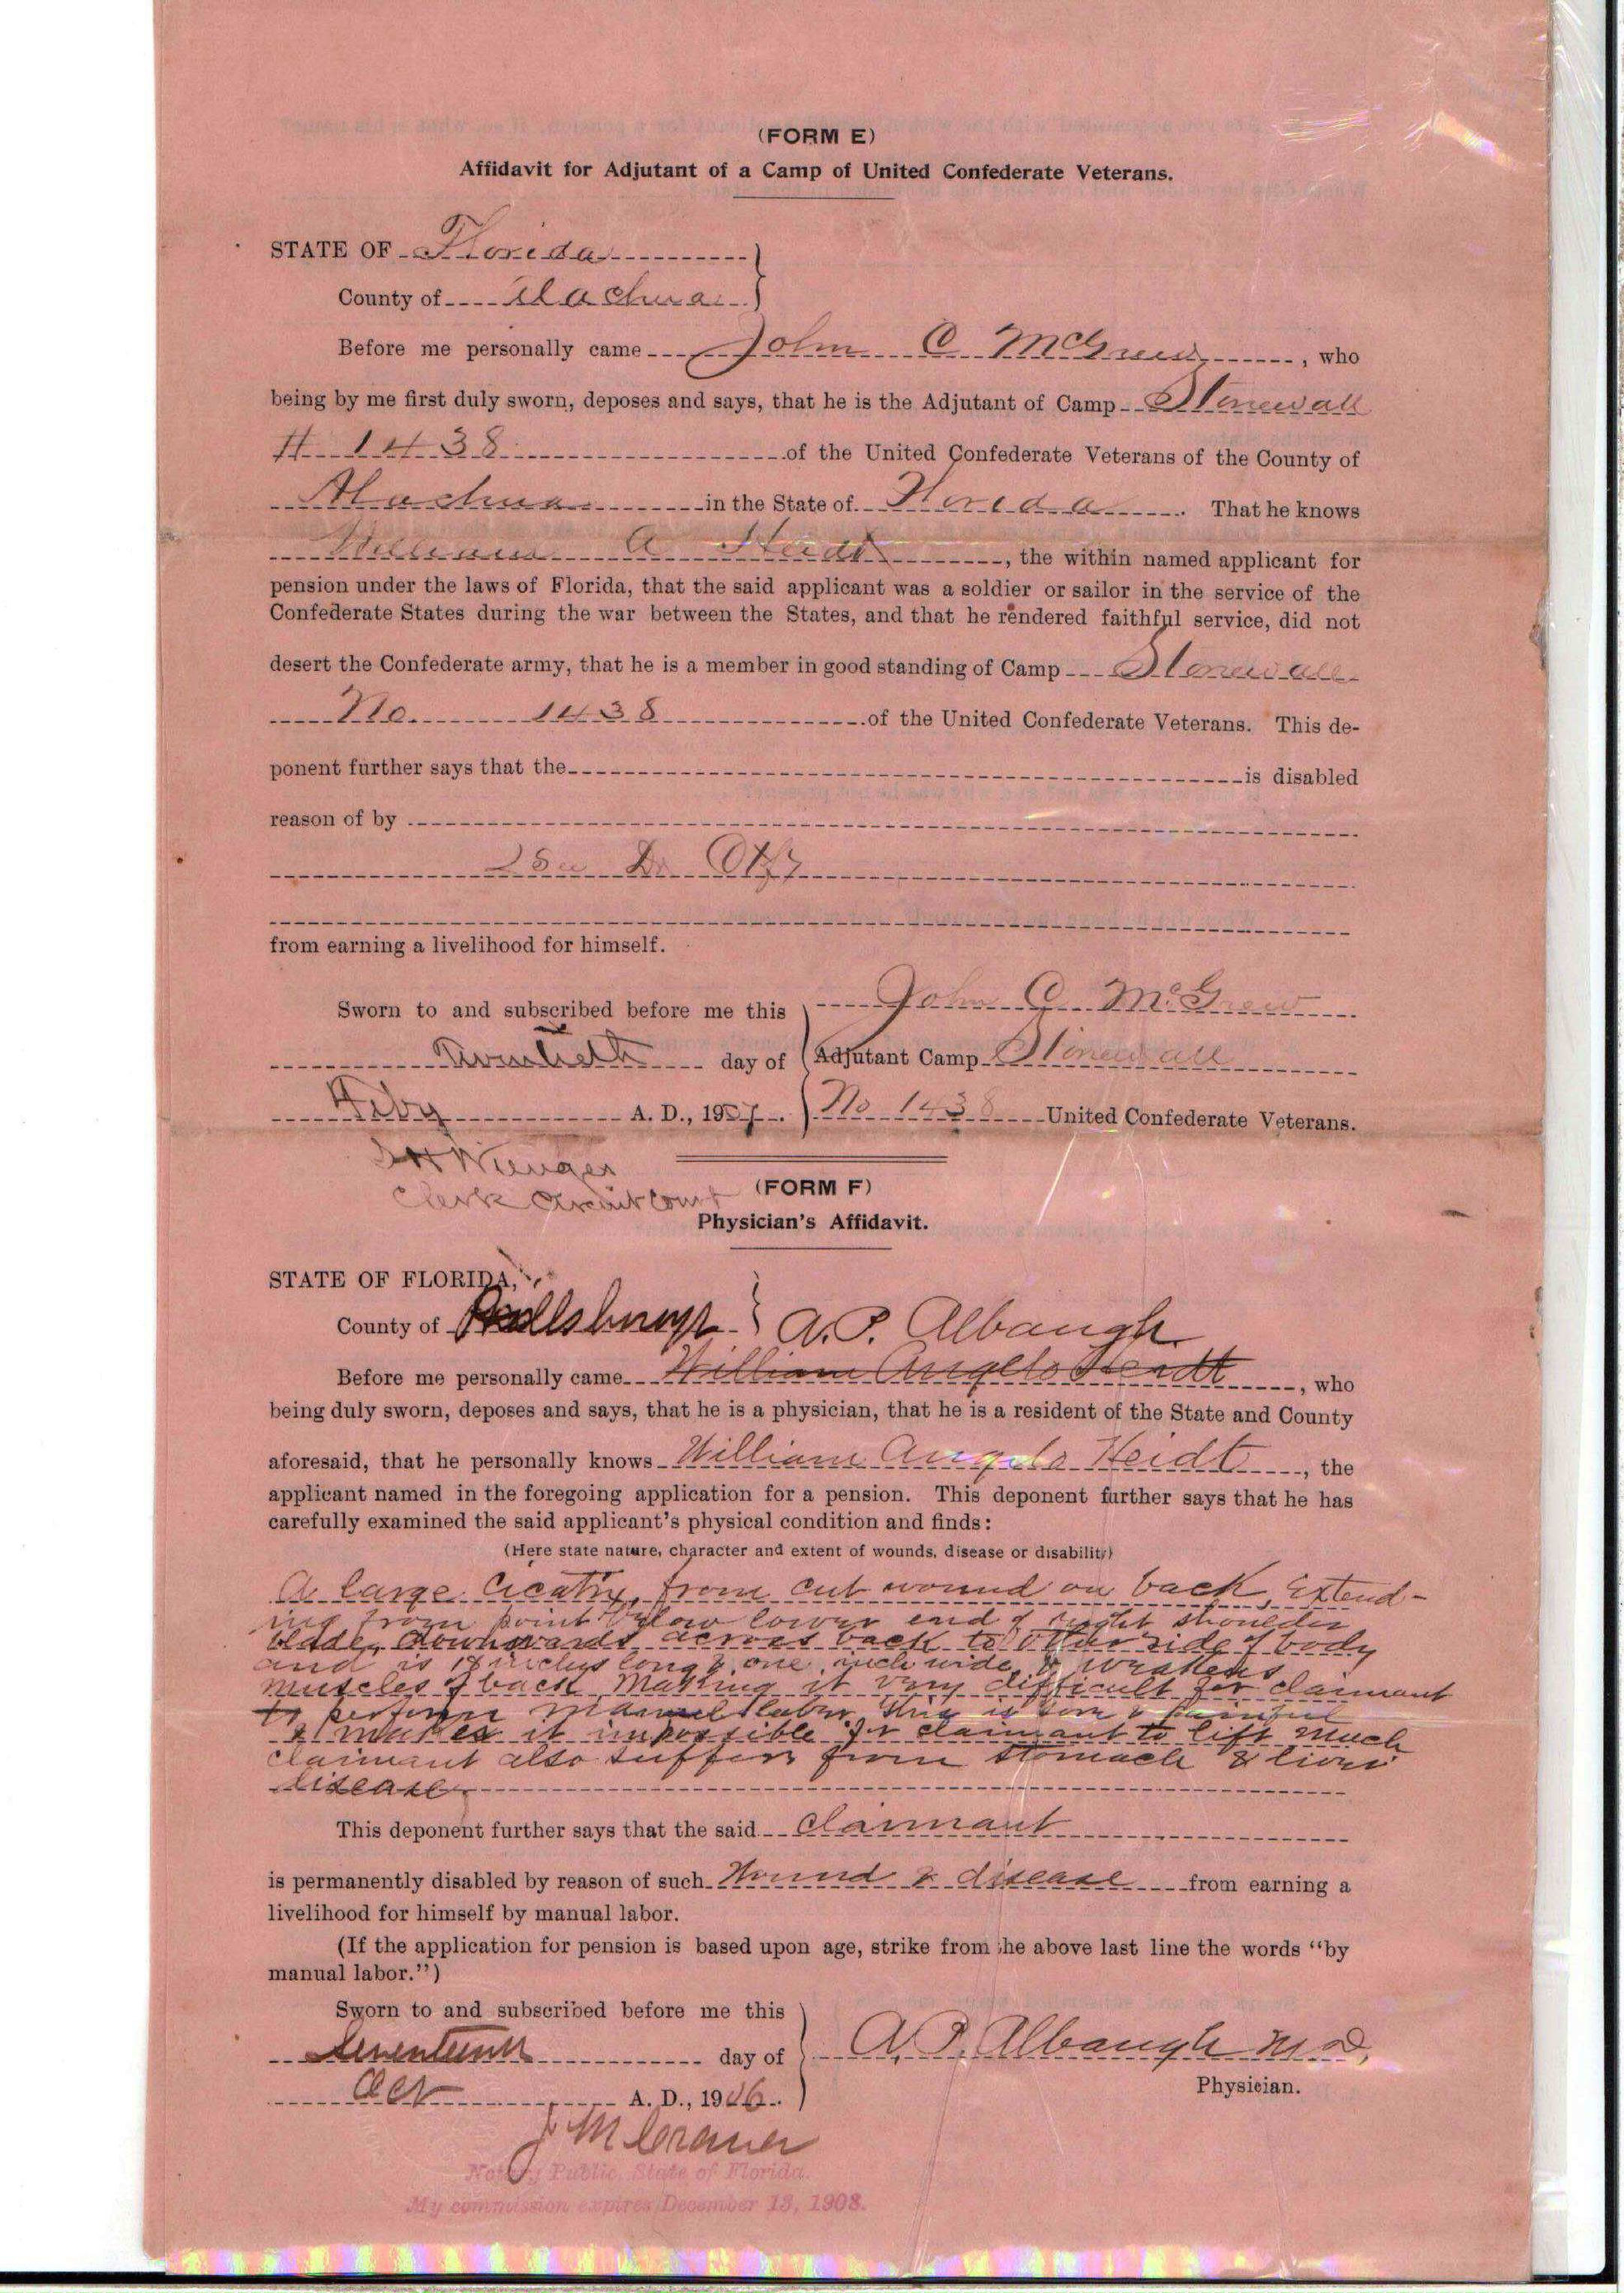 (FORM E)
Affidavit for Adjutant of a Camp of United Confederate Veterans.
STATE OF Florida
County of Alachua
Before me personally came John C McGrew, who
being by me first duly sworn, deposes and says, that he is the Adjutant of Camp Stonewall
# 1438 of the United Confederate Veterans of the County of
Alachua in the State of Florida. That he knows
William A Heidt, the within named applicant for
pension under the laws of Florida, that the said applicant was a soldier or sailor in the service of the
Confederate States during the war between the States, and that he rendered faithful service, did not
desert the Confederate army, that he is a member in good standing of Camp Stonewall
No. 1438 of the United Confederate Veterans. This de-
ponent further says that the is disabled
reason of by
from earning a livelihood for himself.
Sworn to and subscribed before me this John C. McGrew
Twentieth day of Adjutant Camp Stonewall
Feby A. D., 1907. No 1438 United Confederate Veterans.
Clerk Circuit Court
(FORM F)
Physician's Affidavit.
STATE OF FLORIDA,
County of Hillsboro A. P. Albaugh
Before me personally came William Angelo Heidt, who
being duly sworn, deposes and says, that he is a physician, that he is a resident of the State and County
aforesaid, that he personally knows William Angelo Heidt, the
applicant named in the foregoing application for a pension. This deponent further says that he has
carefully examined the said applicant's physical condition and finds:
(Here state nature, character and extent of wounds, disease or disability)
A large Cicatrix, from cut wound on back, Extend-
ing from point below lower end of right shoulder
blade, downwards across back to other side of body
and is 18 inches long & one inch wide, & weakens
muscles of back making it very difficult for claimant
to perform manuel labor, this is sore & painful
& makes it impossible for claimant to lift much
claimant also suffers from stomach & liver
disease.
This deponent further says that the said claimant
is permanently disabled by reason of such Wound & disease from earning a
livelihood for himself by manual labor.
(If the application for pension is based upon age, strike from the above last line the words "by
manual labor.")
Sworn to and subscribed before me this
Seventeenth day of A. P. Albaugh M.D.
Oct A. D., 1906. Physician.
J M Cramer
Notary Public, State of Florida.
My commission expires December 13, 1908.